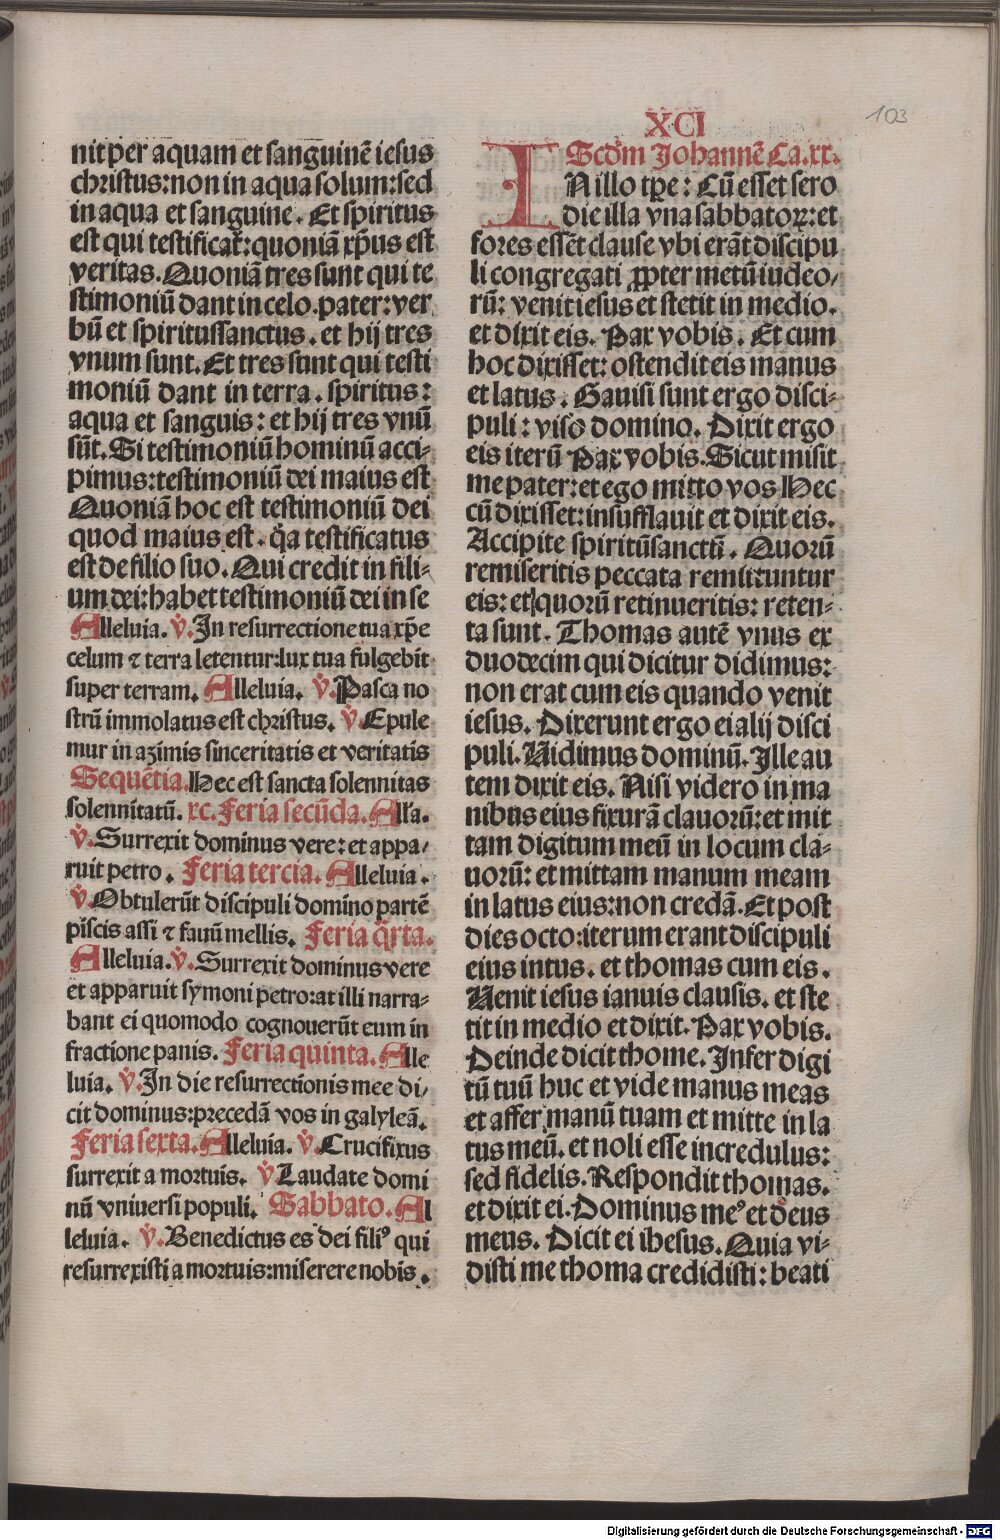 103
XCI
nit per aquam et sanguinē iesus
christus: non in aqua solum: sed
in aqua et sanguine. Et spiritus
est qui testificat᷑: quoniā xp̄us est
veritas. Quoniā tres sunt qui te
stimoniū dant in celo. pater: ver
bū et spiritussanctus. et hij tres
vnum sunt. Et tres sunt qui testi
moniū dant in terra. spiritus:
aqua et sanguis: et hij tres vnū
sūt. Si testimoniū hominū acci-
pimus: testimoniū dei maius est
Quoniā hoc est testimoniū dei
quod maius est. q̄a testificatus
est de filio suo. Qui credit in fili-
um dei: habet testimoniū dei in se
Alleluia. v̊. In resurrectione tua xp̄e
celum ⁊ terra letentur: lux tua fulgebīt
super terram. Alleluia. v̊. Pasca no
strū immolatus est christus. v̊. Epule
mur in azimis sinceritatis et veritatis
Sequētia. Hec est sancta solennitas
solennitatū. xc. Feria secūda. All'a.
v̊. Surrexit dominus vere: et appa/
ruit petro. Feria tercia. Alleluia.
v̊. Obtulerūt discipuli domino partē
piscis assi ⁊ fauū mellis. Feria q̄rta.
Alleluia. v̊. Surrexit dominus vere
et apparuit symoni petro: at illi narra-
bant ei quomodo cognouerūt eum in
fractione panis. Feria quinta. Alle
luia. v̊. In die resurrectionis mee di/
cit dominus: precedā vos in galyleā.
Feria sexta. Alleluia. v̊. Crucifixus
surrexit a mortuis. v̊ Laudate domi
nū vniuersi populi. Sabbato. Al
leluia. v̊. Benedictus es dei fili⁹ qui
resurrexisti a mortuis: miserere nobis.
Scd̄m Johannē Ca. xx.
IN illo tp̄e: Cū esset sero
die illa vna sabbatoꝝ: et
fores essēt clause vbi erāt discipu
li congregati ꝓpter metū iudeo/
rū: venit iesus et stetit in medio.
et dixit eis. Pax vobis. Et cum
hoc dixisset: ostendit eis manus
et latus. Gauisi sunt ergo disci-
puli: viso domino. Dixit ergo
eis iterū Pax vobis. Sicut misit
me pater: et ego mitto vos Hec
cū dixisset: insufflauit et dixit eis.
Accipite spiritūsanctū. Quorū
remiseritis peccata remittuntur
eis: et quorū retinueritis: reten-
ta sunt. Thomas autē vnus ex
duodecim qui dicitur didimus:
non erat cum eis quando venit
iesus. Dixerunt ergo ei alij disci
puli. Uidimus dominū. Ille au
tem dixit eis. Nisi videro in ma
nibus eius fixurā clauorū: et mit
tam digitum meū in locum cla-
uorū: et mittam manum meam
in latus eius: non credā. Et post
dies octo: iterum erant discipuli
eius intus. et thomas cum eis.
Uenit iesus ianuis clausis. et ste
tit in medio et dixit. Pax vobis.
Deinde dicit thome. Infer digi
tū tuū huc et vide manus meas
et affer manū tuam et mitte in la
tus meū. et noli esse incredulus:
sed fidelis. Respondit thomas.
et dixit ei. Dominus me⁹ et deus
meus. Dicit ei ihesus. Quia vi-
disti me thoma credidisti: beati
Digitalisierung gefördert durch die Deutsche Forschungsgemeinschaft - DFG